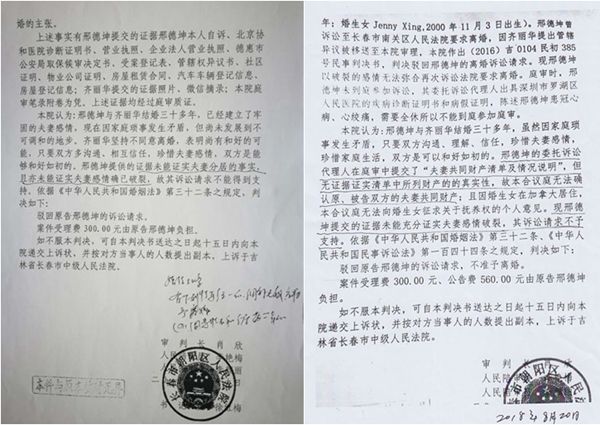 婚的主张。
上述事实有邢德坤提交的证据邢德坤本人自诉、北京协
和医院诊断证明书、营业执照、企业法人营业执照、德惠市
公安局取保候审决定书、受案登记表、管辖权异议书、社区
证明、物业公司证明、房屋租赁合同、汽车车辆登记信息、
房屋登记信息；齐丽华提交的证据照片、微信摘录；本院庭
审笔录附卷为凭。上述证据均经过庭审质证。
本院认为：邢德坤与齐丽华结婚三十多年，已经建立了牢
固的夫妻感情，现在因家庭琐事发生矛盾，但尚未发展到不
可调和的地步。齐丽华坚持不同意离婚，表明尚有和好的可
能，只要双方多沟通、相互信任，珍惜夫妻感情，双方是能
够和好如初的。邢德坤提供的证据未能证实夫妻分居的事实，
且亦未能证实夫妻感情确已破裂，故其诉讼请求不能得到支
持。依据《中华人民共和国婚姻法》第三十二条之规定，判
决如下：
驳回原告邢德坤的诉讼请求。
案件受理费 300.00 元由原告邢德坤负担。
如不服本判决，可自本判决书送达之日起十五日内向本
院递交上诉状，并按对方当事人的人数提出副本，上诉于吉
林省长春市中级人民法院。
审 判 长 肖 欣
本件与原本核对无异
长春市朝阳区人民法院
年；婚生女 Jenny Xing,2000 年 11 月 3 日出生）。邢德坤曾
诉讼至长春市南关区人民法院要求离婚。因齐丽华提出管辖
异议被移送至本院审理，本院作出（2016）吉 0104 民初 385
号民事判决书，判决驳回邢德坤的离婚诉讼请求。现邢德坤
以破裂的感情无法弥合再次诉讼法院要求离婚。庭审时，邢
德坤未到庭参加诉讼，其委托诉讼代理人出具深圳市罗湖区
人民医院的疾病诊断证明书和病假证明，陈述邢德坤患冠心
病、心绞痛，需要全休所以不能到庭参加庭审。
本院认为：邢德坤与齐丽华结婚三十多年，虽然因家庭琐
事发生矛盾，只要双方多沟通、理解、信任，珍惜夫妻感情，
珍惜家庭生活，双方是可以和好如初的。邢德坤的委托诉讼
代理人在庭审中提交了“夫妻共同财产清单及情况说明”，但
无证据证实清单中所列财产的的真实性，故本合议庭无法确
认原、被告双方的夫妻共同财产；且因婚生女在加拿大居住，
本合议庭无法向婚生女征求关于抚养权的个人意见。现邢德
坤提交的证据未能充分证实夫妻感情破裂，其诉讼请求不予
支持。依据《中华人民共和国婚姻法》第三十二条、《中华人
民共和国民事诉讼法》第一百四十四条之规定，判决如下：
驳回原告邢德坤的诉讼请求，不准予离婚。
案件受理费 300.00 元、公告费 560.00 由原告邢德坤
负担。
如不服本判决，可自本判决书送达之日起十五日内向本
院递交上诉状，并按对方当事人的人数提出副本，上诉于
吉林省长春市中级人民法院。
审 判 长
人民陪
人民陪
长春市朝阳区人民法院
2018年8月20日